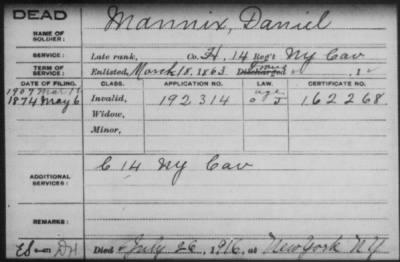 DEAD
NAME OF SOLDIER: Mannix, Daniel
SERVICE: Late rank, Co. H, 14 Reg't NY Cav
TERM OF SERVICE: Enlisted, March 18, 1863 Discharged , 1
DATE OF FILING. CLASS. APPLICATION NO. LAW. CERTIFICATE NO.
1907 Mar
1874 May 6 Invalid, 192314 162268
Widow,
Minor,
ADDITIONAL SERVICES: C 14 NY Cav
REMARKS:
Died July 26, 1916, at New York NY